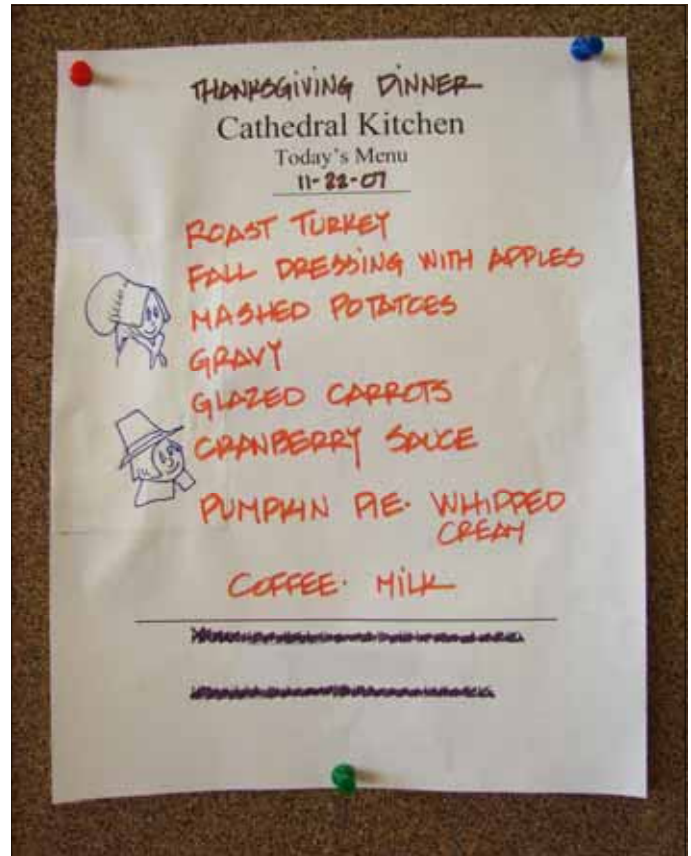 THANKSGIVING DINNER
Cathedral Kitchen
Today's Menu
11-22-07
ROAST TURKEY
FALL DRESSING WITH APPLES
MASHED POTATOES
GRAVY
GLAZED CARROTS
CRANBERRY SAUCE
PUMPKIN PIE· WHIPPED
CREAM
COFFEE· MILK